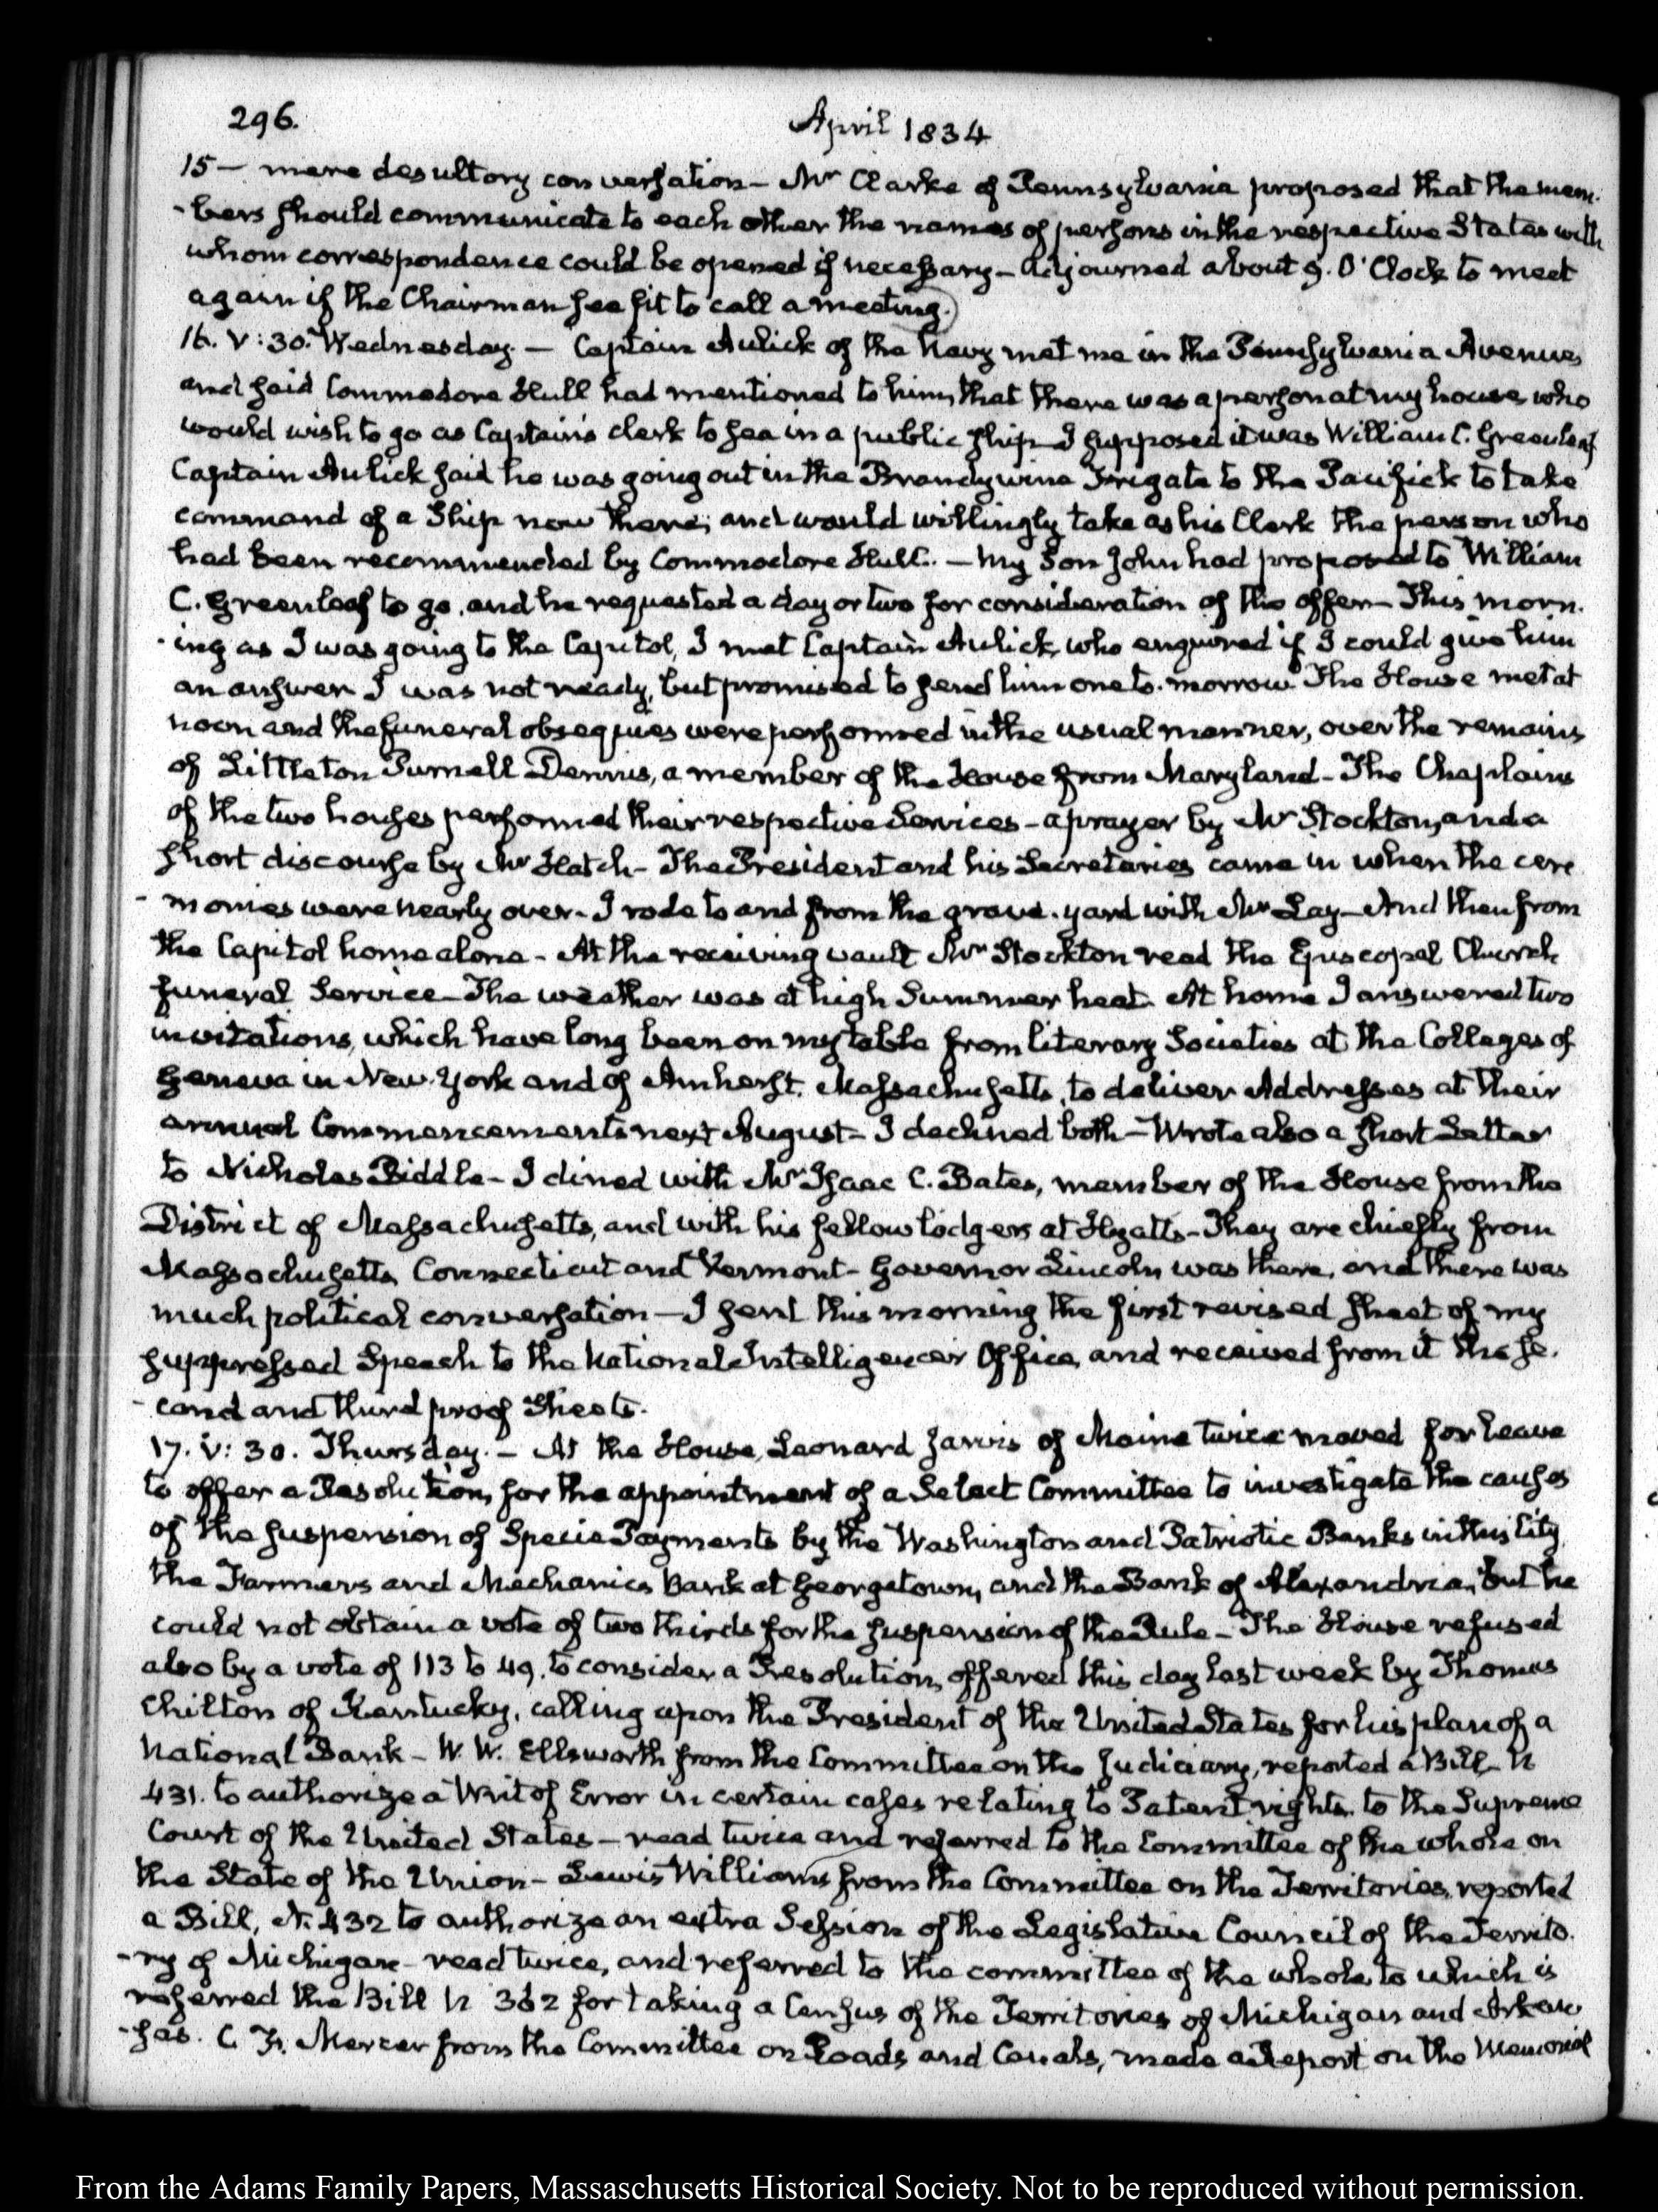 296.
April 1834
15 — mere desultory conversation — Mr Clarke of Pennsylvania proposed that the mem-
-bers should communicate to each other the names of persons in the respective States with
whom correspondence could be opened if necessary — Adjourned about 9. O'Clock to meet
again if the Chairman see fit to call a meeting.
16. V:30. Wednesday. — Captain Aulick of the Navy met me in the Pennsylvania Avenue,
and said Commodore Hull had mentioned to him, that there was a person at my house, who
would wish to go as Captain's clerk to sea in a public ship — I supposed it was William C. Greenleaf
Captain Aulick said he was going out in the Brandywine Frigate to the Pacifick to take
command of a Ship now there; and would willingly take as his Clerk the person who
had been recommended by Commodore Hull. — My Son John had proposed to William
C. Greenleaf to go, and he requested a day or two for consideration of the offer — This morn-
-ing as I was going to the Capitol, I met Captain Aulick, who enquired if I could give him
an answer I was not ready, but promised to send him one to-morrow The House met at
noon and the funeral obsequies were performed in the usual manner, over the remains
of Littleton Purnell Dennis, a member of the House from Maryland — The Chaplains
of the two houses performed their respective Services — a prayer by Mr Stockton, and a
short discourse by Mr Hatch — The President and his Secretaries came in when the cere
-monies were nearly over — I rode to and from the grave-yard with Mr Lay — And then from
the Capitol home alone — At the receiving vault Mr Stockton read the Episcopal Church
funeral Service — The weather was at high Summer heat. At home I answered two
invitations, which have long been on my table from literary Societies at the Colleges of
Geneva in New-York and of Amherst, Massachusetts, to deliver Addresses at their
annual Commencements next August — I declined both — Wrote also a short Letter
to Nicholas Biddle — I dined with Mr Isaac C. Bates, member of the House from the
District of Massachusetts, and with his fellow lodgers at Hyatts — They are chiefly from
Massachusetts, Connecticut and Vermont — Governor Lincoln was there, and there was
much political conversation — I sent this morning the first revised sheet of my
suppressed Speech to the National Intelligencer Office, and received from it the se-
-cond and third proof Sheets.
17. V:30. Thursday. — At the House, Leonard Jarvis of Maine twice moved for leave
to offer a Resolution, for the appointment of a Select Committee to investigate the causes
of the suspension of Specie Payments by the Washington and Patriotic Banks in this City,
the Farmers and Mechanics Bank at Georgetown, and the Bank of Alexandria, but he
could not obtain a vote of two thirds for the suspension of the Rule — The House refused
also by a vote of 113 to 49. to consider a Resolution, offered this day last week by Thomas
Chilton of Kentucky, calling upon the President of the United States for his plan of a
National Bank — W. W. Ellsworth from the Committee on the Judiciary, reported a Bill — N
431. to authorize a Writ of Error in certain cases relating to Patent rights to the Supreme
Court of the United States — read twice and referred to the Committee of the whole on
the State of the Union — Lewis Williams from the Committee on the Territories, reported
a Bill, N. 432 to authorize an extra Session of the Legislative Council of the Territo-
-ry of Michigan — read twice, and referred to the committee of the whole to which is
referred the Bill N 362 for taking a Census of the Territories of Michigan and Arkan
-sas. C. F. Mercer from the Committee on Roads and Canals, made a Report on the Memorial
From the Adams Family Papers, Massachusetts Historical Society. Not to be reproduced without permission.